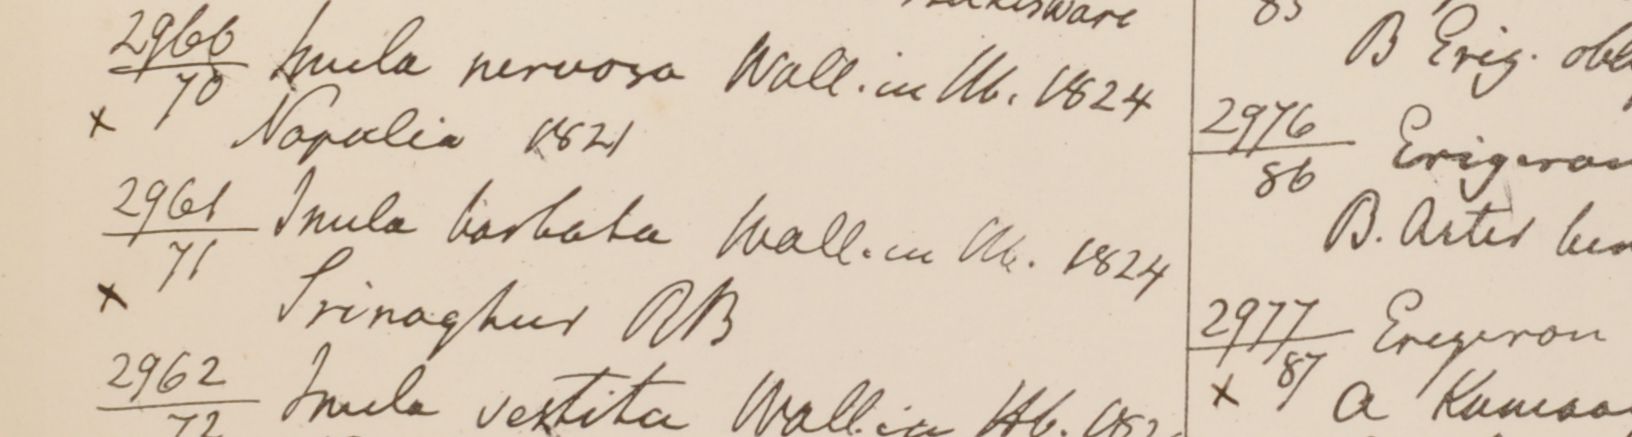 2960
70 Inula nervosa Wall. in Hb. 1824
x Napalia 1821
2961
71 Inula barbata Wall. in Hb. 1824
x Srinaghur RB
2962
72 Inula vestita Wall. in Hb. 182
85
B Erig.
2976
86 Erigeron
B. Aster
2977
87 Erigeron
x a Kumaon